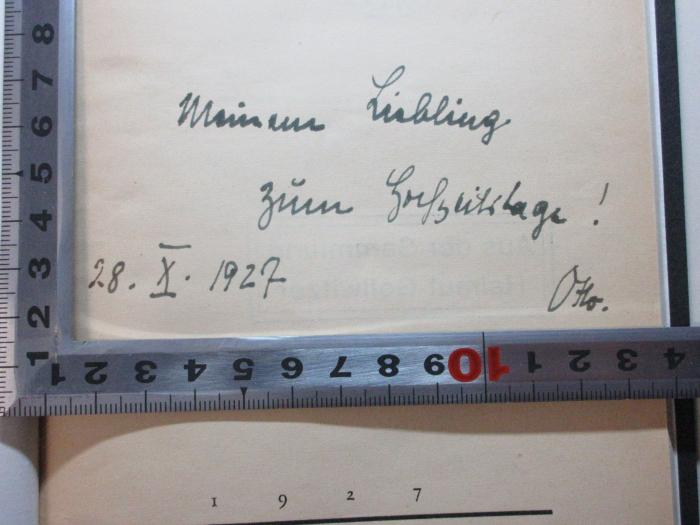 Meinem Liebling
zum Hochzeitstage!
28. X. 1927 Otto.
8
7
6
5
4
3
2
1
1 2 3 4 5 6 7 8 9 10 1 2 3 4
1927